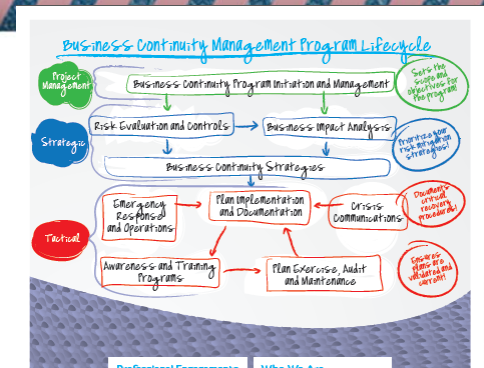 Business Continuity Management Program Lifecycle
Project
Management
Business Continuity Program Initiation and Management
Sets the
scope and
objectives for
the program!
Strategic
Risk Evaluation and Controls
Business Impact Analysis
Prioritize your
risk mitigation
strategies!
Business Continuity Strategies
Tactical
Emergency
Response
and Operations
Plan Implementation
and Documentation
Crisis
Communications
Documents
critical
recovery
procedures!
Awareness and Training
Programs
Plan Exercise, Audit
and Maintenance
Ensures
plans are
validated and
current!
Professional Engagements
Who We Are